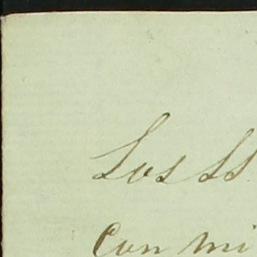 Los SS
Con mi